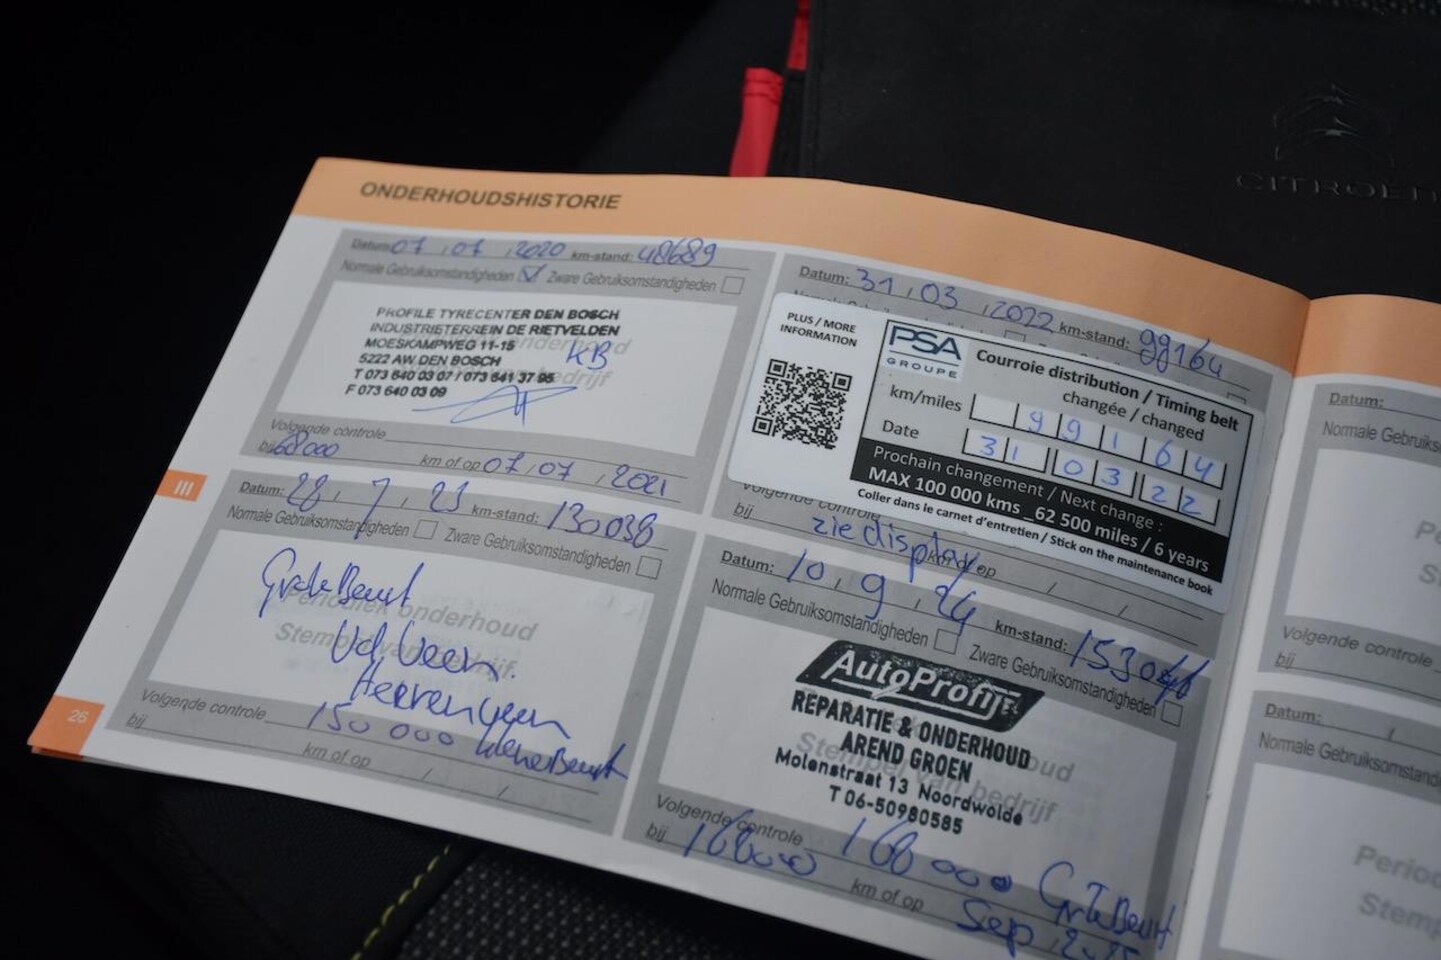 CITROËN
ONDERHOUDSHISTORIE
Datum: 07 / 07 / 2020 km-stand: 48689
Normale Gebruiksomstandigheden Zware Gebruiksomstandigheden
PROFILE TYRECENTER DEN BOSCH
INDUSTRIETERREIN DE RIETVELDEN
MOESKAMPWEG 11-15
5222 AW DEN BOSCH
T 073 640 03 07 / 073 641 37 95
F 073 640 03 09
KB
Volgende controle
bij 68000 km of op 07 / 07 / 2021
Datum: 31 / 03 / 2022 km-stand: 99164
PLUS / MORE
INFORMATION
PSA
GROUPE
Courroie distribution / Timing belt
changée / changed
km/miles 99164
Date 31 03 22
Prochain changement / Next change :
MAX 100 000 kms _62 500 miles / 6 years
Coller dans le carnet d'entretien / Stick on the maintenance book
Volgende controle
bij zie display km of op / /
III
Datum: 28 / 7 / 23 km-stand: 130038
Normale Gebruiksomstandigheden Zware Gebruiksomstandigheden
Periodiek onderhoud
Stempel van bedrijf
Grote Beurt
Vd Veen.
Heerenveen
Volgende controle
bij 150 000 kleine Beurt
km of op / /
26
Datum: 10 / 9 / 24 km-stand:
Normale Gebruiksomstandigheden Zware Gebruiksomstandigheden
AutoProfijt
REPARATIE & ONDERHOUD
AREND GROEN
Molenstraat 13 Noordwolde
T 06-50980585
Stempel van bedrijf
Volgende controle 168000 Grote Beurt
bij 168000 km of op Sep 2025
Datum:
Normale Gebruiks
Volgende controle
bij
Datum: /
Normale Gebruiksomstandig